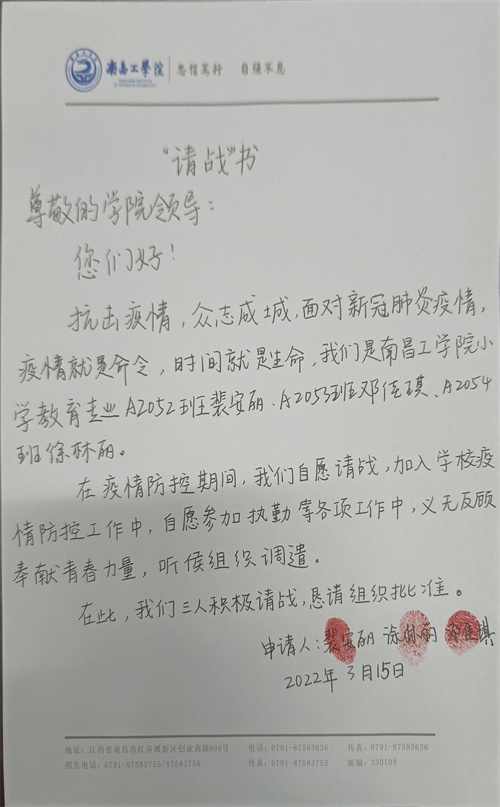 南昌工学院 忠信笃行 自强不息
“请战”书
尊敬的学院领导:
您们好!
抗击疫情,众志成城,面对新冠肺炎疫情,
疫情就是命令,时间就是生命,我们是南昌工学院小
学教育专业A2052班裴安丽、A2053班邓佳琪、A2054
班徐林丽。
在疫情防控期间,我们自愿请战,加入学校疫
情防控工作中,自愿参加执勤等各项工作中,义无反顾
奉献青春力量,听候组织调遣。
在此,我们三人积极请战,恳请组织批准。
申请人:裴安丽 徐林丽 邓佳琪
2022年3月15日
地址:江西省南昌市红谷滩新区创业南路998号 电话:0791-87583636 传真:0791-83758636
招生电话:0791-87583755/87583758 传真:0791-83753755 邮编:330108